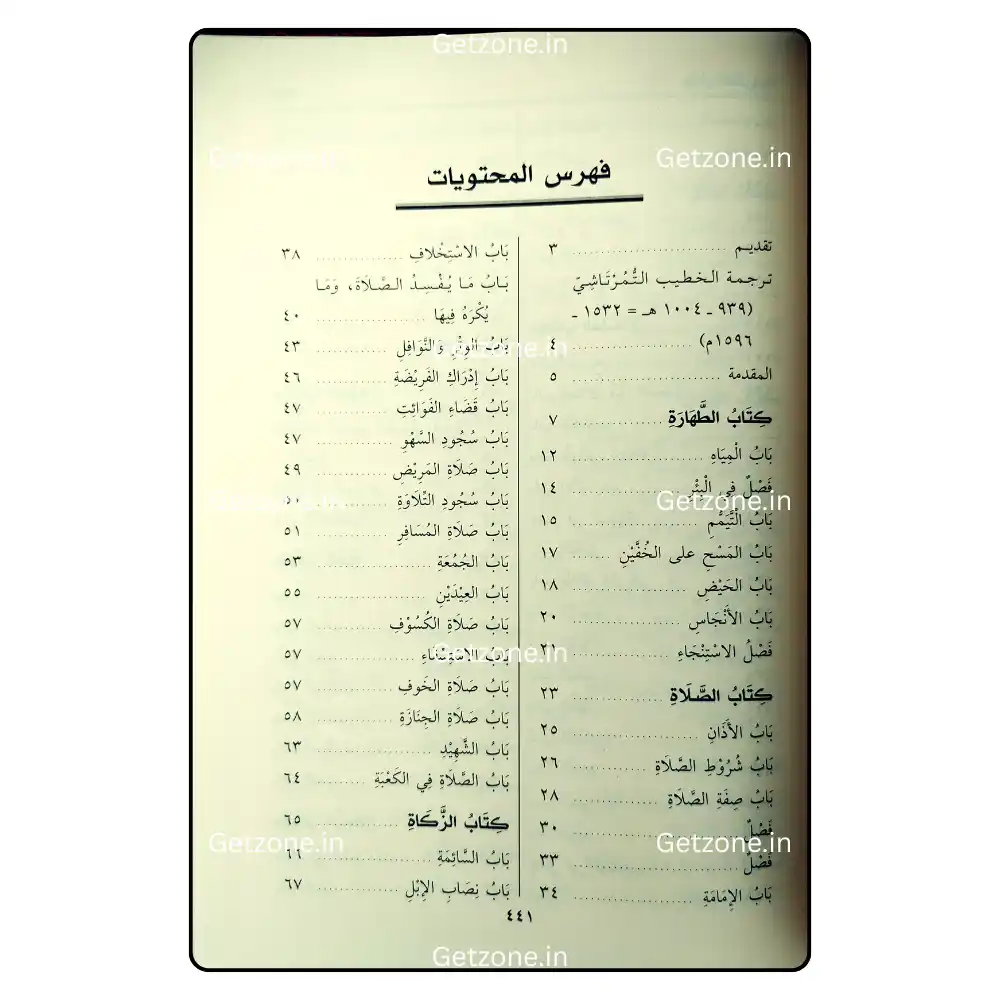 فهرس المحتويات
تقديم ........................... ٣
ترجمة الخطيب التُّمُرْتَاشِيّ
(٩٣٩ ـ ١٠٠٤ هـ = ١٥٣٢ ـ
١٥٩٦م) ..................... ٤
المقدمة .......................... ٥
كِتَابُ الطَّهَارَةِ ................ ٧
بَابُ الْمِيَاهِ ........................ ١٢
فَصْلٌ فِي الْبِئْرِ .................... ١٤
بَابُ التَّيَمُّمِ ....................... ١٥
بَابُ المَسْحِ على الخُفَّيْنِ ....... ١٧
بَابُ الحَيْضِ ..................... ١٨
بَابُ الأَنْجَاسِ .................... ٢٠
فَصْلُ الاسْتِنْجَاءِ .................. ٢١
كِتَابُ الصَّلَاةِ ................ ٢٣
بَابُ الأَذَانِ ...................... ٢٥
بَابُ شُرُوْطِ الصَّلَاةِ ............. ٢٦
بَابُ صِفَةِ الصَّلَاةِ ............... ٢٨
فَصْلٌ ............................ ٣٠
فَصْلٌ ............................ ٣٣
بَابُ الإِمَامَةِ ..................... ٣٤
بَابُ الاسْتِخْلافِ ................ ٣٨
بَابُ مَا يُفْسِدُ الصَّلَاةَ، وَمَا
يُكْرَهُ فِيهَا .................... ٤٠
بَابُ الوِتْرِ وَالنَّوَافِلِ ............. ٤٣
بَابُ إِدْرَاكِ الفَرِيْضَةِ ............. ٤٦
بَابُ قَضَاءِ الفَوَائِتِ ............. ٤٧
بَابُ سُجُودِ السَّهْوِ .............. ٤٧
بَابُ صَلَاةِ المَرِيْضِ ............. ٤٩
بَابُ سُجُودِ التِّلَاوَةِ .............
بَابُ صَلَاةِ المُسَافِرِ ............. ٥١
بَابُ الجُمُعَةِ ..................... ٥٣
بَابُ العِيْدَيْنِ .................... ٥٥
بَابُ صَلَاةِ الكُسُوْفِ ............ ٥٧
بَابُ الاسْتِسْقَاءِ .................. ٥٧
بَابُ صَلَاةِ الخَوفِ ............... ٥٧
بَابُ صَلَاةِ الجِنَازَةِ .............. ٥٨
بَابُ الشَّهِيْدِ ..................... ٦٣
بَابُ الصَّلَاةِ فِي الكَعْبَةِ ......... ٦٤
كِتَابُ الزَّكَاةِ ................ ٦٥
بَابُ السَّائِمَةِ .................... ٦٦
بَابُ نِصَابِ الإِبْلِ ............... ٦٧
٤٤١
Getzone.in
Getzone.in
Getzone.in
Getzone.in
Getzone.in
Getzone.in
Getzone.in
Getzone.in
Getzone.in
Getzone.in